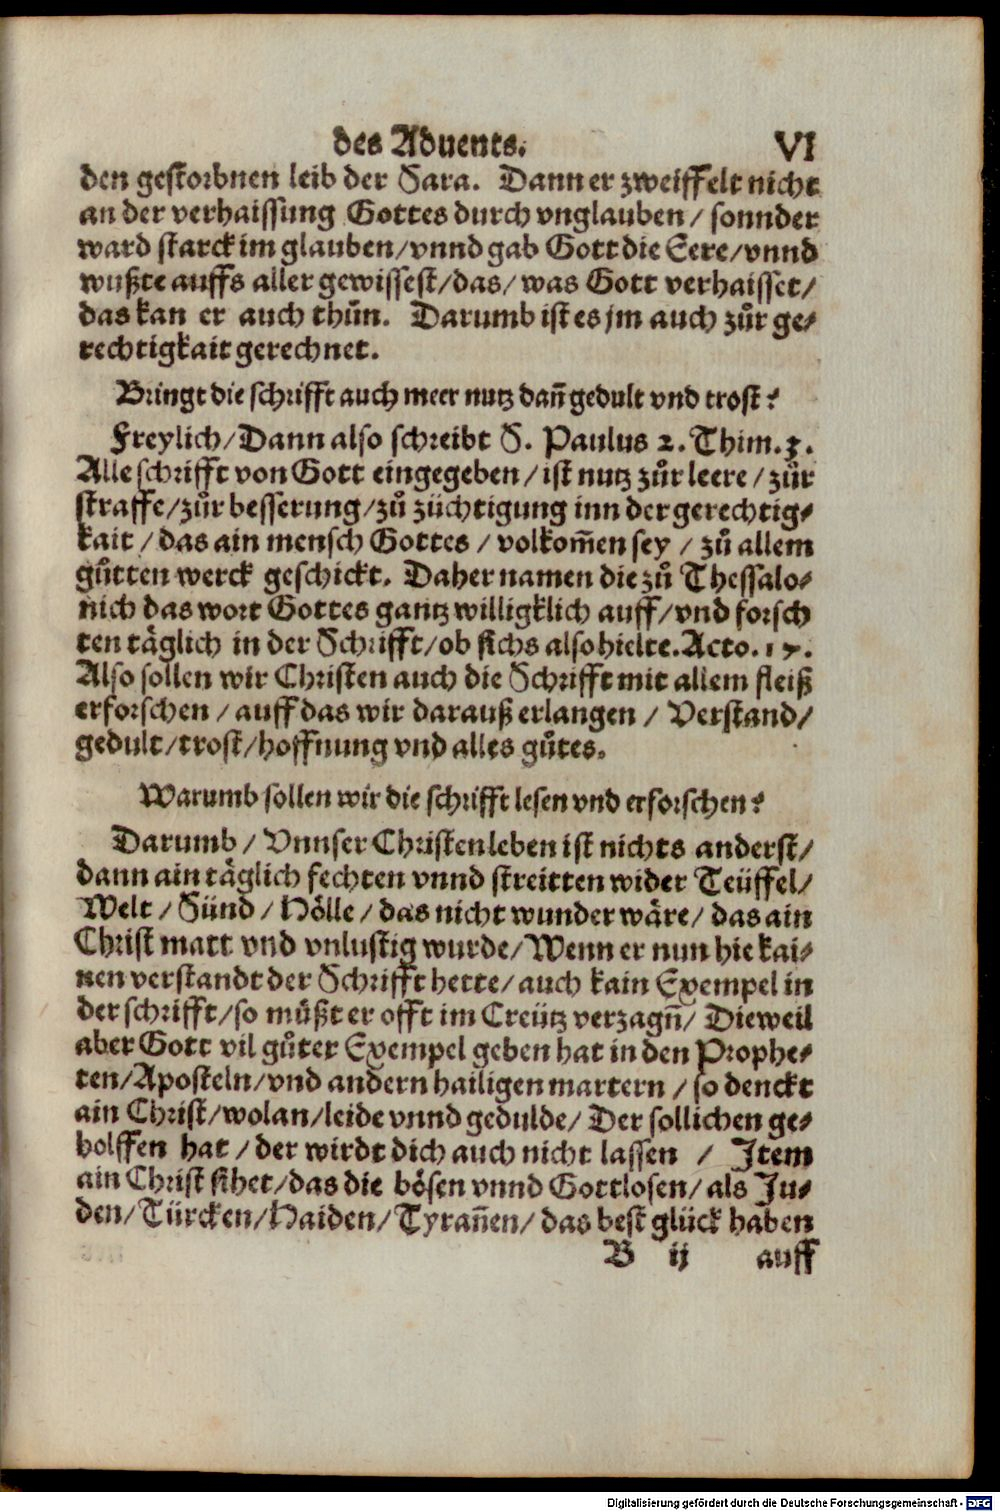 des Aduents. VI
den gestorbnen leib der Sara. Dann er zweiffelt nicht
an der verhaissung Gottes durch vnglauben / sonnder
ward starck im glauben / vnnd gab Gott die Eere / vnnd
wußte auffs aller gewissest / das / was Gott verhaisset /
das kan er auch thůn. Darumb ist es jm auch zůr ge⸗
rechtigkait gerechnet.
Bringt die schrifft auch meer nutz dañ gedult vnd trost?
Freylich / Dann also schreibt S. Paulus 2. Thim. 3.
Alle schrifft von Gott eingegeben / ist nutz zůr leere / zůr
straffe / zůr besserung / zů züchtigung inn der gerechtig⸗
kait / das ain mensch Gottes / volkom̄en sey / zů allem
gůtten werck geschickt. Daher namen die zů Thessalo⸗
nich das wort Gottes gantz willigklich auff / vnd forsch
ten täglich in der Schrifft / ob sichs also hielte. Acto. 17.
Also sollen wir Christen auch die Schrifft mit allem fleiß
erforschen / auff das wir darauß erlangen / Verstand /
gedult / trost / hoffnung vnd alles gůtes.
Warumb sollen wir die schrifft lesen vnd erforschen?
Darumb / Vnnser Christen leben ist nichts anderst /
dann ain täglich fechten vnnd streitten wider Teüffel /
Welt / Sünd / Hölle / das nicht wunder wäre / das ain
Christ matt vnd vnlustig wurde / Wenn er nun hie kai⸗
nen verstandt der Schrifft hette / auch kain Exempel in
der schrifft / so müßt er offt im Creütz verzagñ / Dieweil
aber Gott vil gůter Exempel geben hat in den Prophe⸗
ten / Aposteln / vnd andern hailigen martern / so denckt
ain Christ / wolan / leide vnnd gedulde / Der sollichen ge⸗
holffen hat / der wirdt dich auch nicht lassen / Item
ain Christ sihet / das die bösen vnnd Gottlosen / als Ju⸗
den / Türcken / Haiden / Tyrañen / das best glück haben
B ij auff
Digitalisierung gefördert durch die Deutsche Forschungsgemeinschaft - DFG